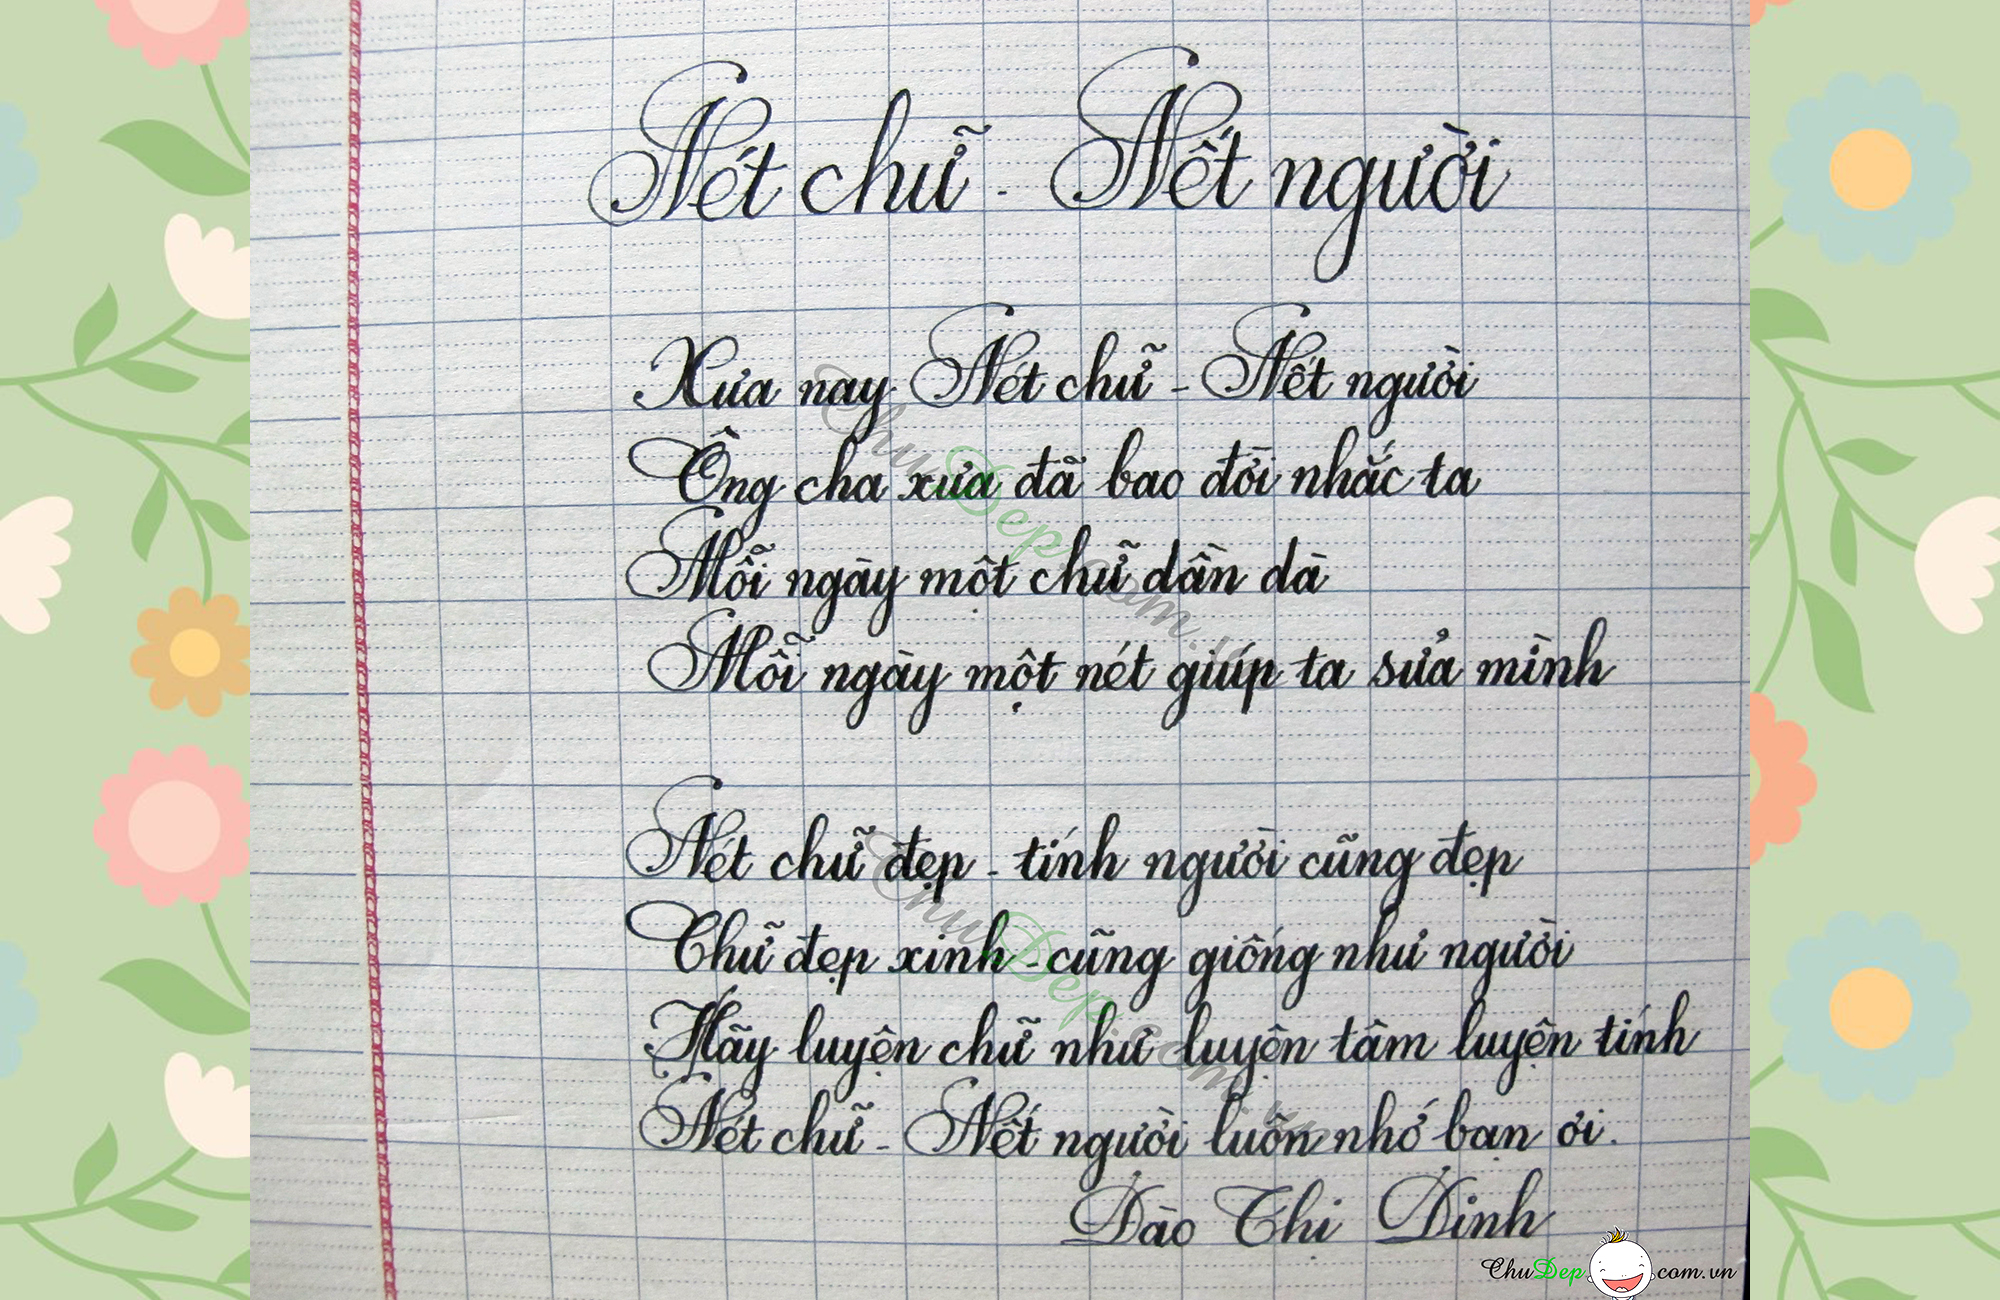 Nét chữ - Nết người
Xưa nay Nét chữ - Nết người
Ông cha xưa đã bao đời nhắc ta
Mỗi ngày một chữ dần dà
Mỗi ngày một nét giúp ta sửa mình
Nét chữ đẹp - tính người cũng đẹp
Chữ đẹp xinh - cũng giống như người
Hãy luyện chữ như luyện tâm luyện tính
Nét chữ - Nết người luôn nhớ bạn ơi.
Đào Thị Dinh
ChuDep.com.vn
ChuDep.com.vn
ChuDep.com.vn